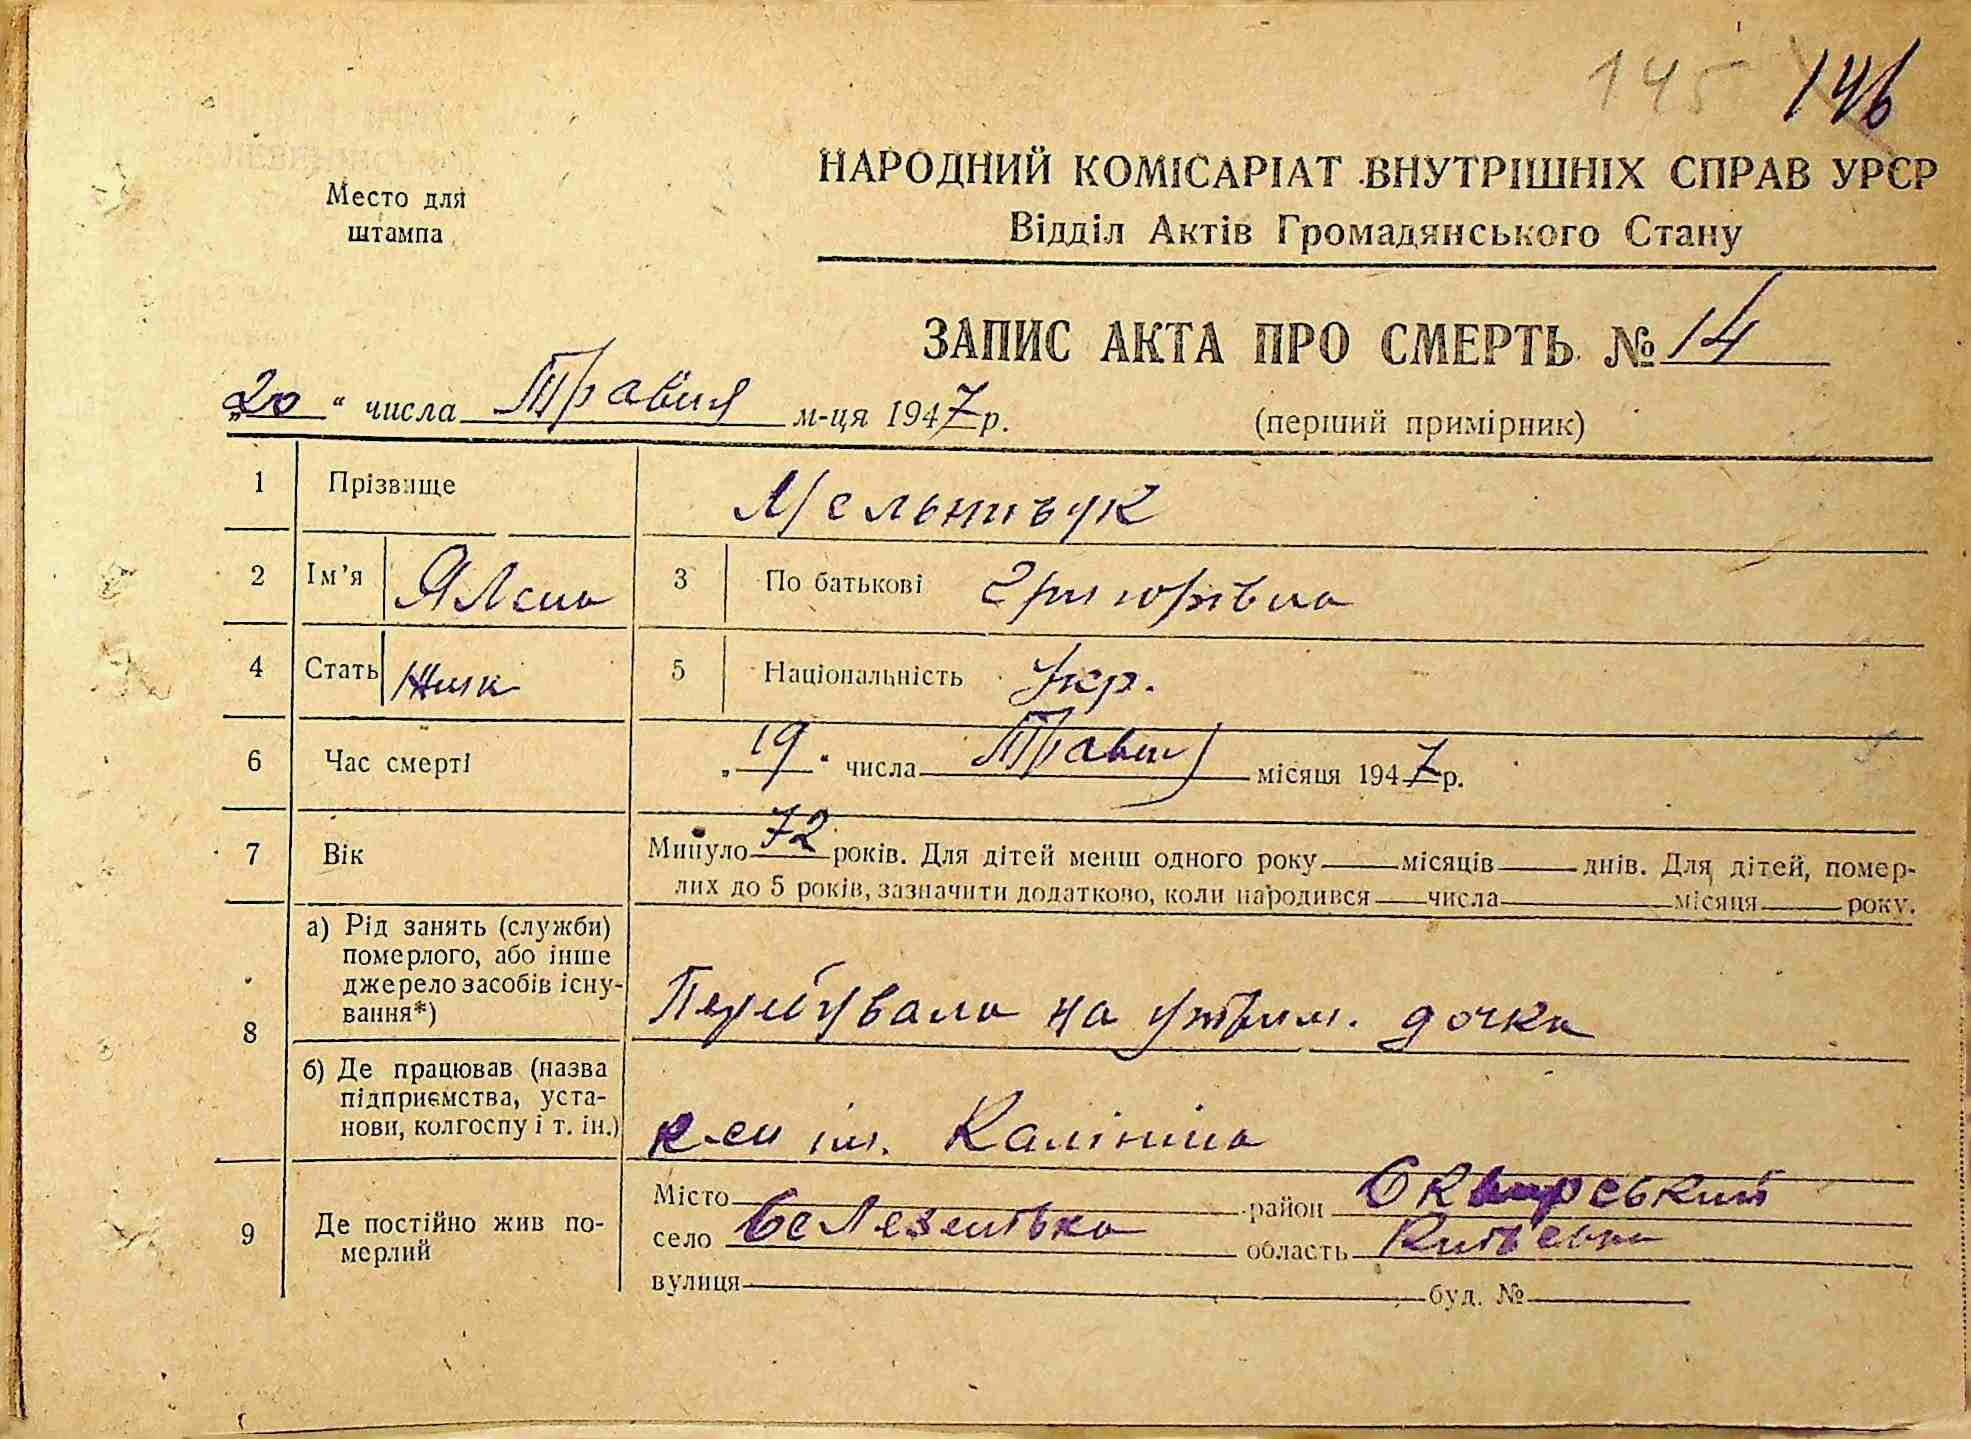 145 146
НАРОДНИЙ КОМІСАРІАТ ВНУТРІШНІХ СПРАВ УРЄР
Место для штампа
Відділ Актів Громадянського Стану
ЗАПИС АКТА ПРО СМЕРТЬ № 14
„20" числа Травня м-ця 1947 р. (перший примірник)
1 Прізвище Мельничук
2 Ім'я Ялена 3 По батькові Григорівна
4 Стать жінк 5 Національність Укр.
6 Час смерті „19" числа Травня місяця 1947 р.
7 Вік Минуло 72 років. Для дітей менш одного року місяців днів. Для дітей, помер-
лих до 5 років, зазначити додатково, коли народився числа місяця року.
8 а) Рід занять (служби)
померлого, або інше
джерело засобів існу-
вання*) Перебувала на утрим. дочки
б) Де працював (назва
підприємства, уста-
нови, колгоспу і т. ін.) ім. Калініна
9 Де постійно жив по-
мерлий
Місто район Сквирський
село область Київська
вулиця буд. №